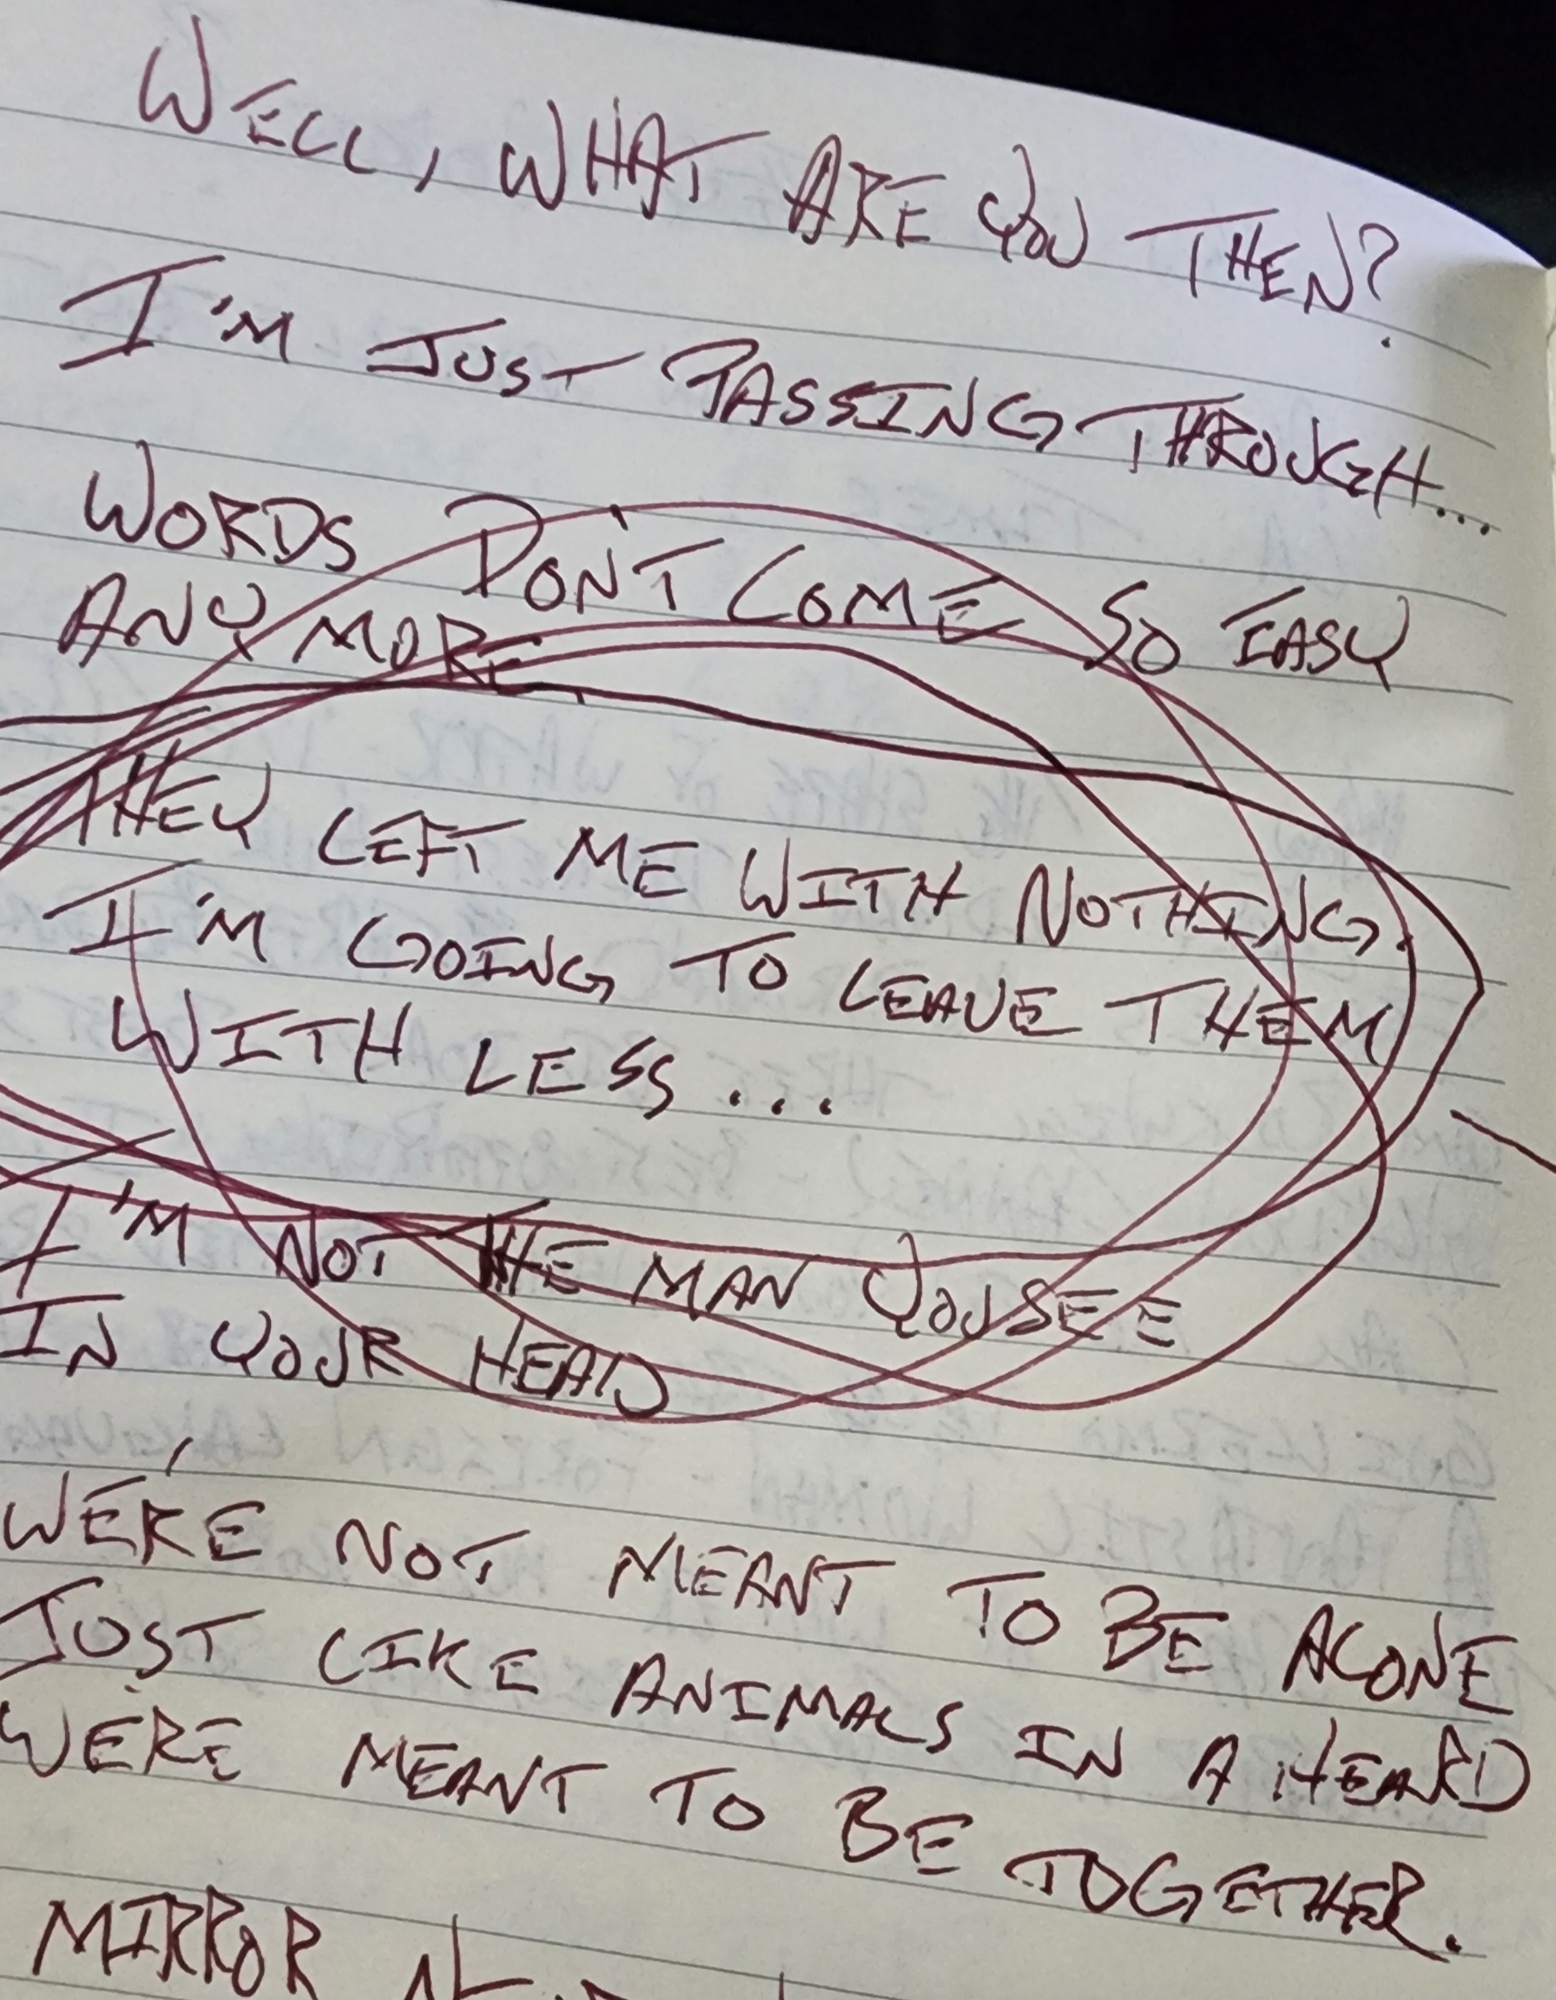 WELL, WHAT ARE YOU THEN?
I'M JUST PASSING THROUGH...
WORDS DON'T COME SO EASY
ANYMORE.
THEY LEFT ME WITH NOTHING.
I'M GOING TO LEAVE THEM
WITH LESS...
I'M NOT THE MAN YOU SEE
IN YOUR HEAD
WE'RE NOT MEANT TO BE ALONE
JUST LIKE ANIMALS IN A HEARD
WE'RE MEANT TO BE TOGETHER.
MIRROR